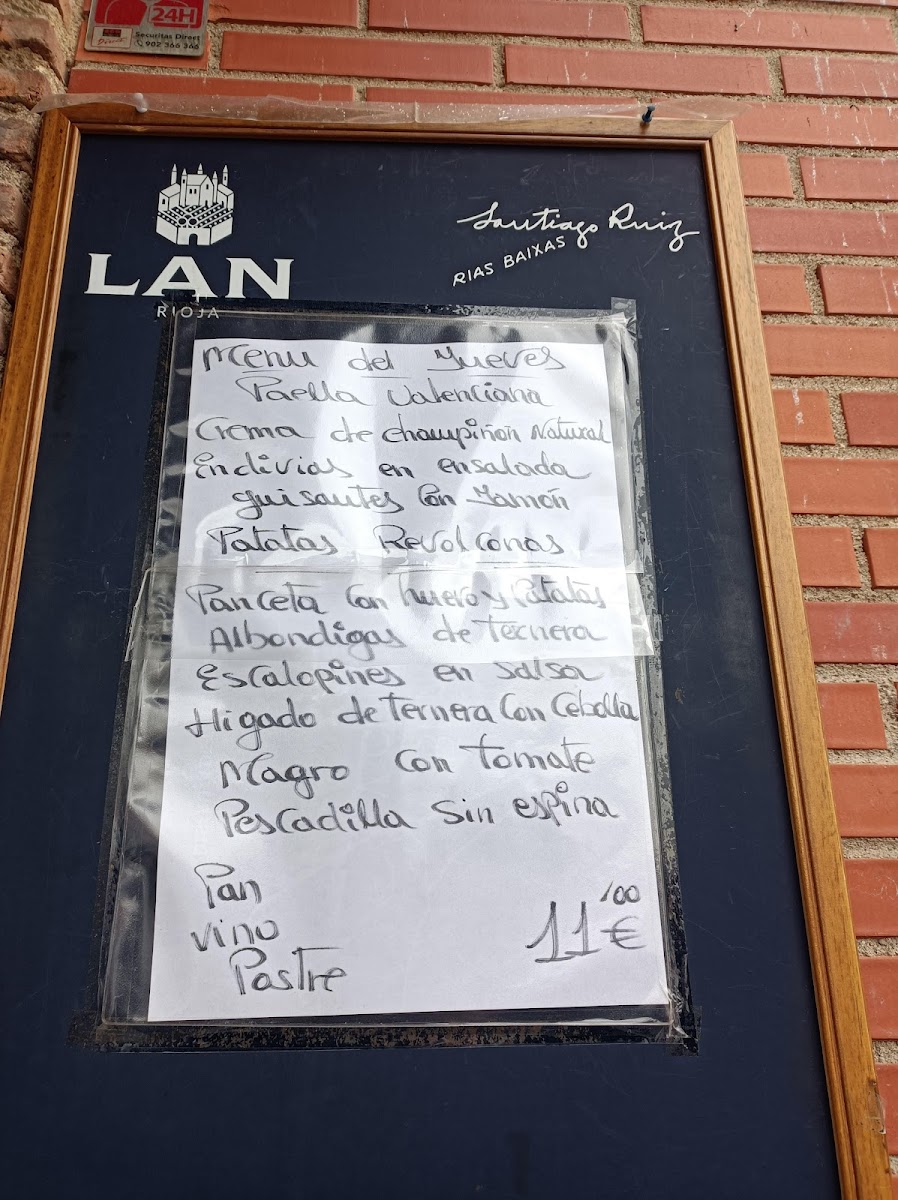 24H
Securitas Direct
902 366 366
LAN
RIOJA
Santiago Ruiz
RIAS BAIXAS
Menu del Jueves
Paella Valenciana
Crema de champiñón Natural
Endivias en ensalada
guisantes Con Jamón
Patatas Revolconas
Panceta Con huevo y Patatas
Albondigas de Ternera
Escalopines en Salsa
Higado de Ternera Con Cebolla
Magro con Tomate
Pescadilla Sin espina
Pan
vino
Postre
11'00 €